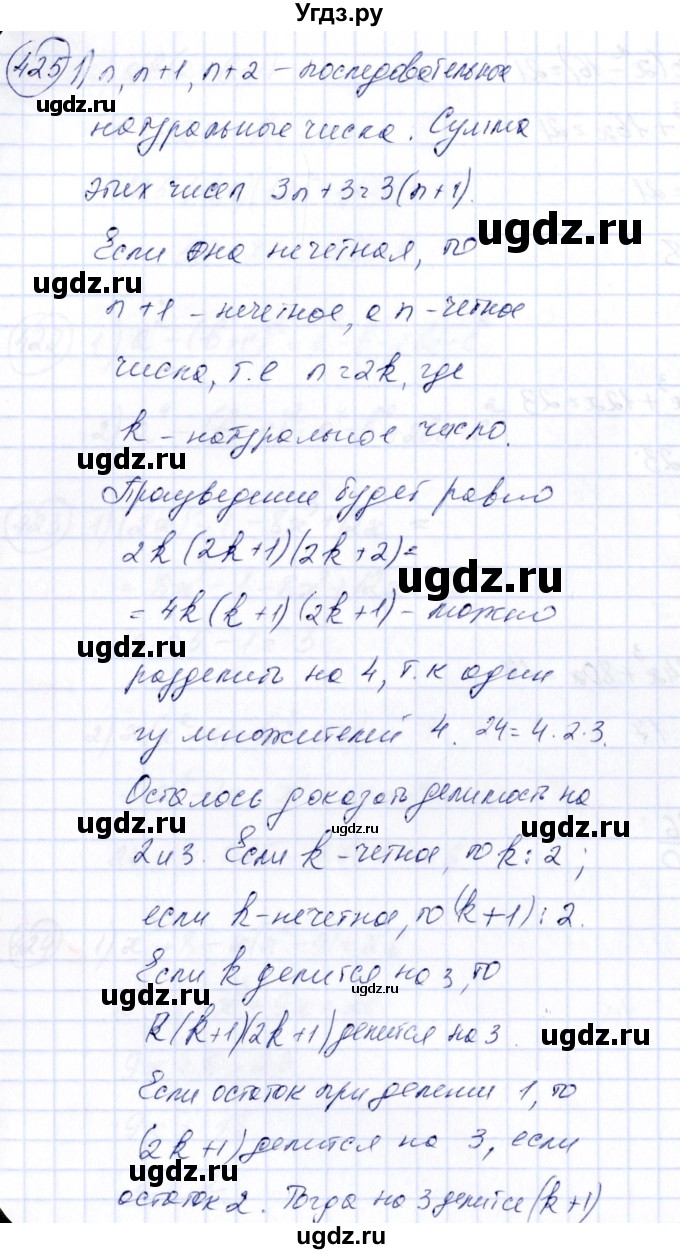 Угдз.ру
425 1) n, n+1, n+2 – последовательное
натуральные числа. Сумма
этих чисел 3n+3=3(n+1).
ugdz.ru
Если она нечетная, то
ugdz.ru
n+1 – нечетное, а n – четное
числа, т.е n=2k, где
k – натуральное число.
ugdz.ru
Произведение будет равно
2k(2k+1)(2k+2)=
ugdz.ru
=4k(k+1)(2k+1) – можно
ugdz.ru
разделить на 4, т.к один
множителей 4. 24=4·2·3.
Осталось доказать делимость на
ugdz.ru
ugdz.ru
2 и 3. Если k – четное, то k⋮2;
если k – нечетное, то (k+1)⋮2.
Если k делится на 3, то
ugdz.ru
k(k+1)(2k+1) делится на 3
ugdz.ru
Если остаток при делении 1, то
(2k+1) делится на 3, если
ugdz.ru
остаток 2. Тогда на 3 делится (k+1)